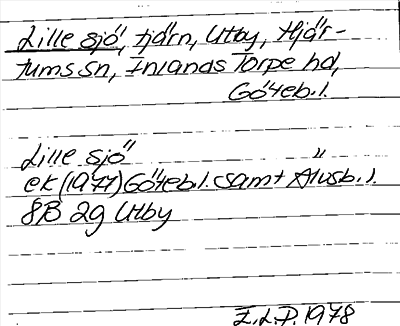 Lille sjö, tjärn, Utby, Hjär-
tums sn, Inlands Torpe hd,
Göteb.l.
Lille sjö "
ek (1977) Göteb.l. samt Älvsb.l.
8B 2g Utby
E.L.P. 1978